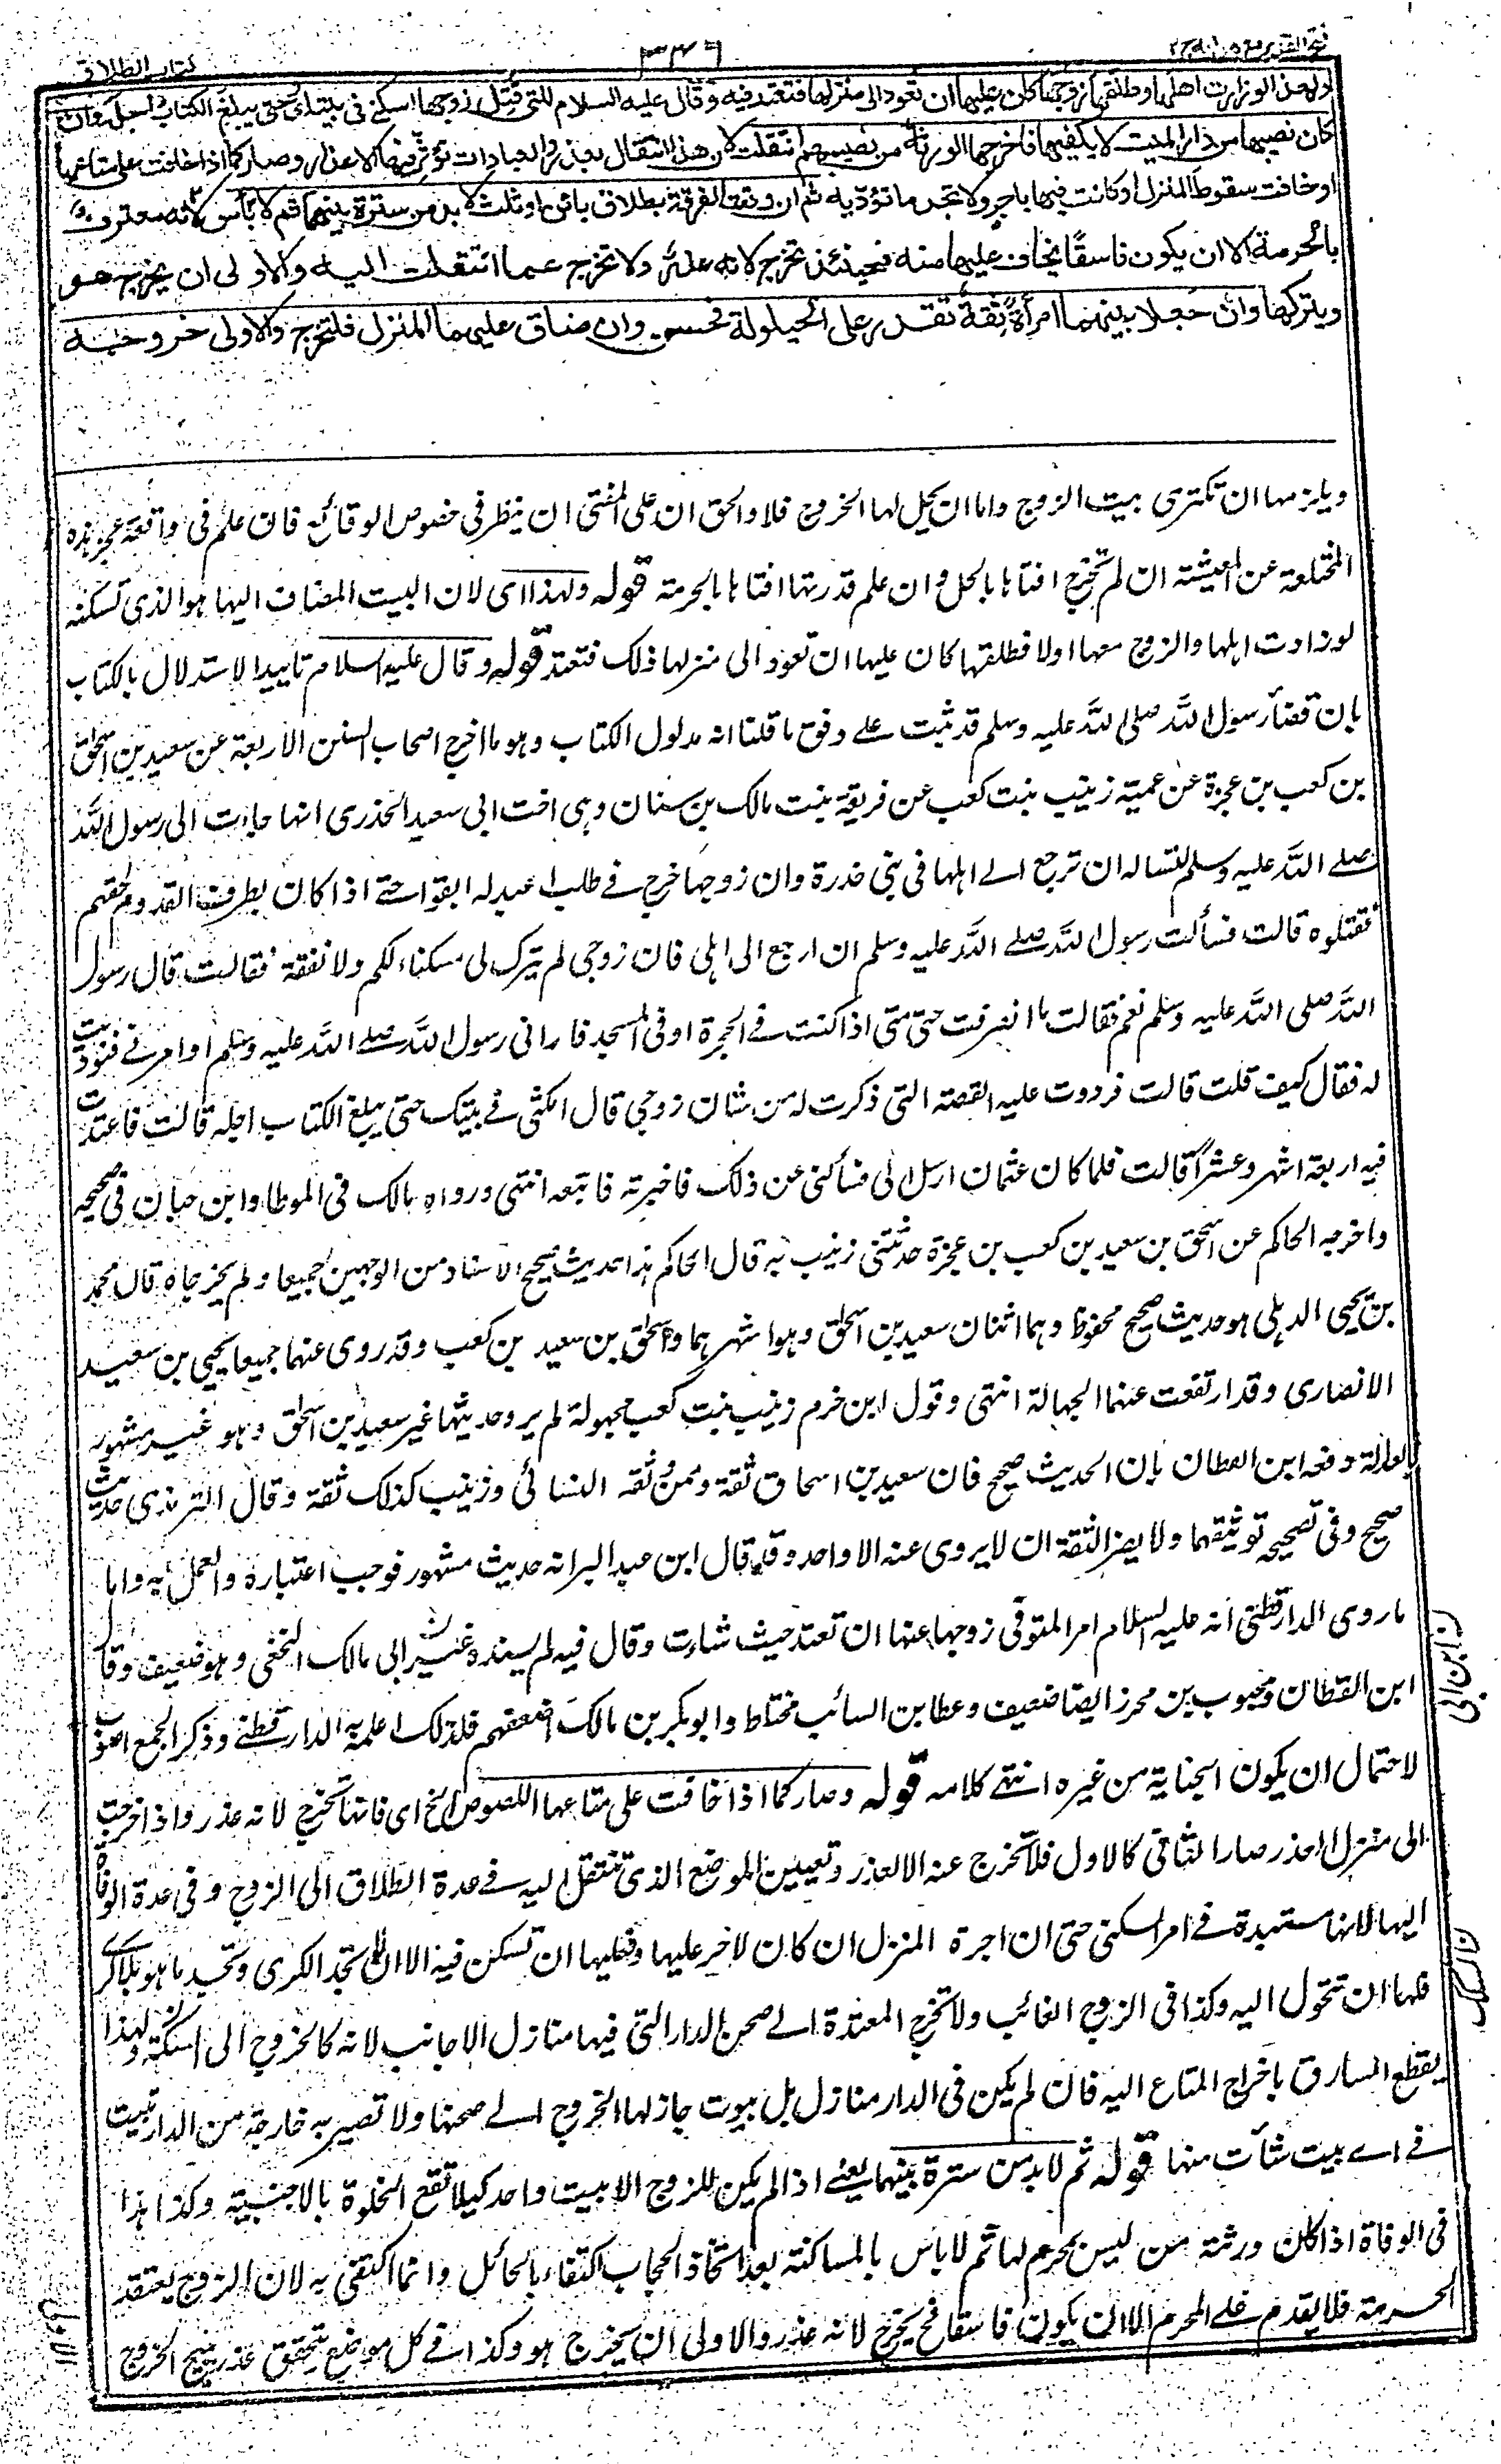 فتح القدير مع الهداية ج ٢
٣٣٦
كتاب الطلاق
ولهذا لو زارت اهلها وطلقها زوجها كان عليها ان تعود الى منزلها فتعتد فيه وقال عليه السلام للتى قتل زوجها اسكنى فى بيتك حتى يبلغ الكتاب اجله وان
كان نصيبها من دار الميت لا يكفيها فاخرجها الورثة من نصيبهم انتقلت لان هذا انتقال بعذر والعبادات تؤثر فيها الاعذار وصار كما اذا خافت على متاعها
او خافت سقوط المنزل او كانت فيها باجر ولا تجد ما تؤديه ثم ان وقعت الفرقة بطلاق بائن او ثلث لا بد من سترة بينهما ثم لا بأس لانه معترف
بالحرمة الا ان يكون فاسقًا يخاف عليها منه فحينئذ تخرج لانه عذر ولا تخرج عما انتقلت اليه والاولى ان يخرج هو
ويتركها وان جعلا بينهما امرأة ثقة تقدر على الحيلولة فحسن وان ضاق عليهما المنزل فلتخرج والاولى خروجه
ويلزمها ان تكترى بيت الزوج واما ان يحل لها الخروج فلا والحق ان على المفتى ان ينظر فى خصوص الوقائع فان علم فى واقعة عجز هذه
المختلعة عن المعيشة ان لم تخرج افتاها بالحل وان علم قدرتها افتاها بالحرمة قوله ولهذا اى لان البيت المضاف اليها هو الذى تسكنه
لو زارت اهلها والزوج معها اولا فطلقها كان عليها ان تعود الى منزلها ذلك فتعتد قوله وقال عليه السلام تاييد الاستدلال بالكتاب
بان قضاء رسول الله صلى الله عليه وسلم قد ثبت على وفق ما قلنا انه مدلول الكتاب وهو ما اخرج اصحاب السنن الاربعة عن سعيد بن اسحق
بن كعب بن عجرة عن عمته زينب بنت كعب عن فريعة بنت مالك بن سنان وهى اخت ابى سعيد الخدرى انها جاءت الى رسول الله
صلے الله عليه وسلم لتساله ان ترجع الے اهلها فى بنى خدرة وان زوجها خرج فے طلب اعبد له ابقوا حتے اذا كان بطرف القدوم لحقهم
فقتلوه قالت فسألت رسول الله صلے الله عليه وسلم ان ارجع الى اهلى فان زوجى لم يترك لى مسكنا يملكه ولا نفقة فقالت قال رسول
الله صلى الله عليه وسلم نعم فقالت فانصرفت حتى متى اذا كنت فے الحجرة او فى المسجد نادانى رسول الله صلے الله عليه وسلم او امر بے فنوديت
له فقال كيف قلت قالت فرددت عليه القصة التى ذكرت له من شان زوجى قال امكثى فے بيتك حتى يبلغ الكتاب اجله قالت فاعتدت
فيه اربعة اشهر وعشرًا قالت فلما كان عثمان ارسل الى فسألنى عن ذلك فاخبرته فاتبعه انتهى ورواه مالك فى الموطا وابن حبان فى صحيحه
واخرجه الحاكم عن اسحق بن سعيد بن كعب بن عجرة حدثتنى زينب به قال الحاكم هذا حديث صحيح الاسناد من الوجهين جميعا ولم يخرجاه قال محمد
بن يحيى الذهلى هو حديث صحيح محفوظ وهما اثنان سعيد بن اسحق وهو اشهرهما واسحق بن سعيد بن كعب وقد روى عنهما جميعا يحيى بن سعيد
الانصارى وقد ارتفعت عنهما الجهالة انتهى وقول ابن حزم زينب بنت كعب مجهولة لم يرو حديثها غير سعيد بن اسحق وهو غير مشهور
بالعدالة دفعه ابن القطان بان الحديث صحيح فان سعيد بن اسحاق ثقة وممن وثقه النسائى وزينب كذلك ثقة وقال الترمذى حديث
صحيح وفى تصحيحه توثيقهما ولا يضر الثقة ان لا يروى عنه الا واحد وقد قال ابن عبد البر انه حديث مشهور فوجب اعتباره والعمل به واما
ما روى الدارقطنى انه عليه السلام امر المتوفى زوجها عنها ان تعتد حيث شاءت وقال فيه لم يسنده غير ابى مالك النخعى وهو ضعيف وقال
ابن القطان ومحبوب بن محرز ايضا ضعيف وعطا بن السائب مختلط وابو بكر بن مالك اضعفهم فلذلك اعله به الدارقطنے وذكر الجمع اصوب
لاحتمال ان يكون الجناية من غيره انتهے كلامه قوله وصار كما اذا خافت على متاعها اللصوص الخ اى فانها تخرج لانه عذر واذا خرجت
الى منزل لعذر صار الثانى كالاول فلا تخرج عنه الا لعذر وتعيين الموضع الذى تنتقل اليه فے عدة الطلاق الى الزوج وفى عدة الوفاة
اليها لانها مستبدة فے امر السكنى حتى ان اجرة المنزل ان كان لاخر عليها وفعليها ان تسكن فيه الا ان لا تجد الكرى وتجد ما هو بلا كرے
فلها ان تتحول اليه وكذا فى الزوج الغائب ولا تخرج المعتدة الے صحن الدار التى فيها منازل الاجانب لانه كالخروج الى السكة ولهذا
يقطع السارق باخراج المتاع اليه فان لم يكن فى الدار منازل بل بيوت جاز لها الخروج الے صحنها ولا تصير به خارجة من الدار تبيت
فے اے بيت شأت منها قوله ثم لا بد من سترة بينهما يعنے اذا لم يكن للزوج الا بيت واحد كيلا تقع الخلوة بالاجنبية وكذا هذا
فى الوفاة اذا كان ورثته من ليس بمحرم لها ثم لا باس بالمساكنة بعد اتخاذ الحجاب اكتفاء بالحائل وانما اكتفى به لان الزوج يعتقد
الحرمة فلا يقدم علے المحرم الا ان يكون فاسقا فح يخرج لانه عذر والاولى ان يخرج هو وكذا فے كل موضع يتحقق عذر يبيح الخروج